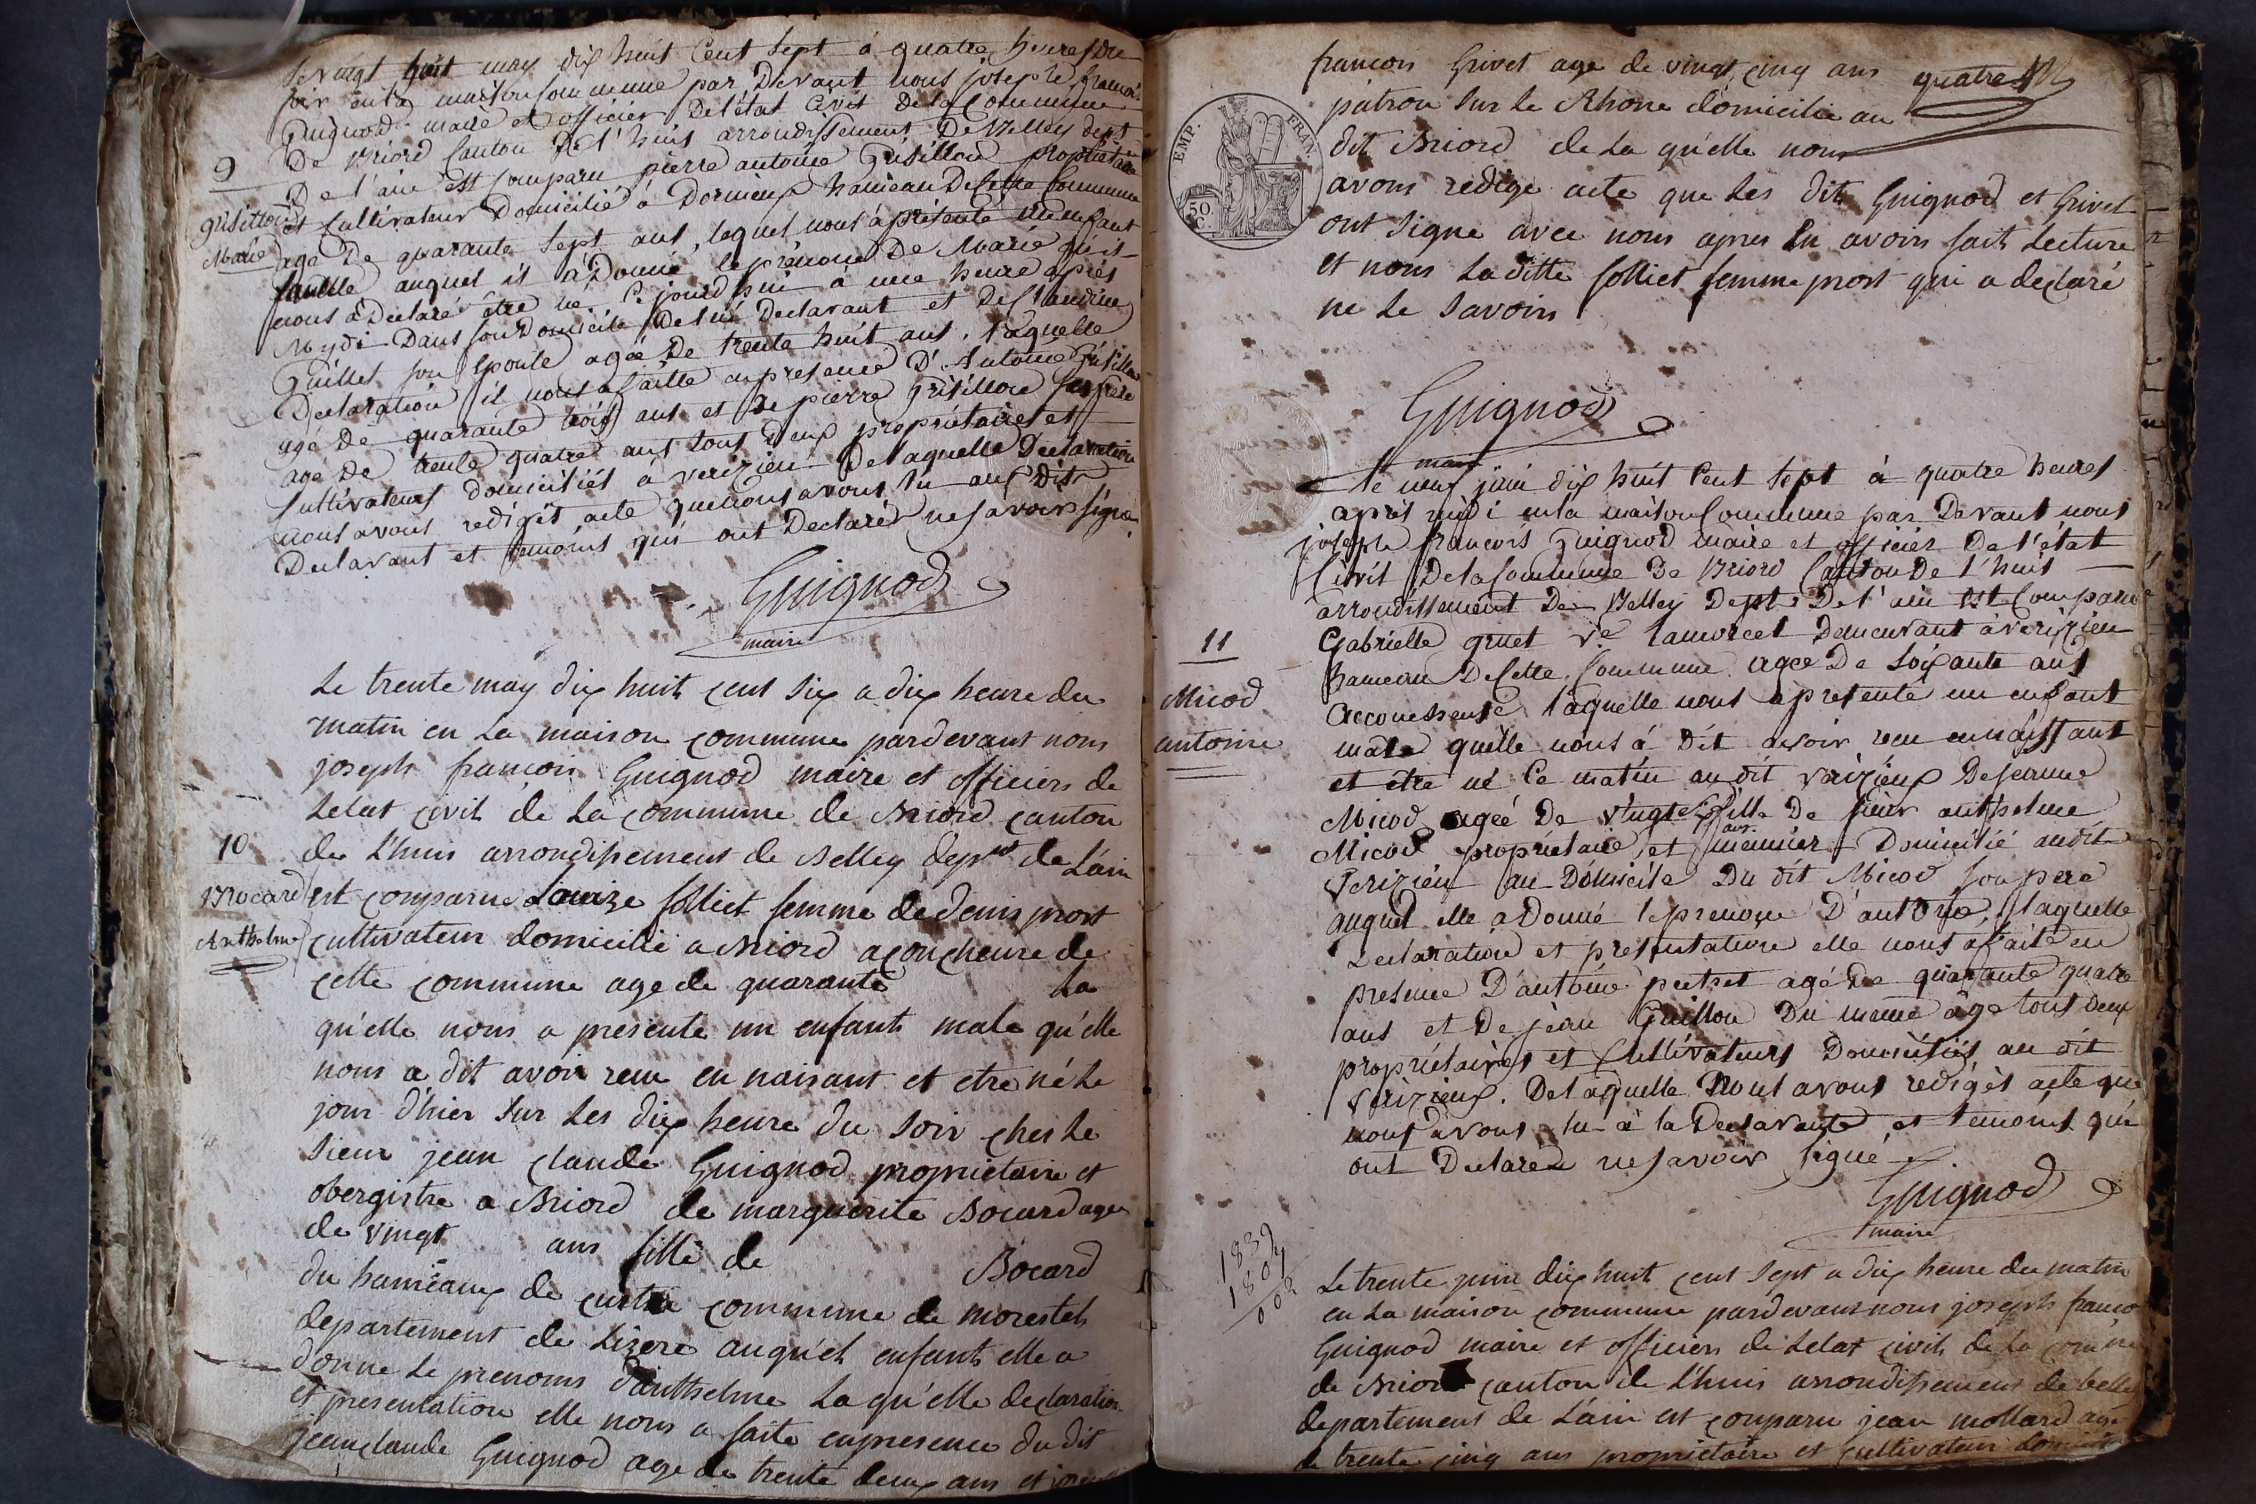 Le vingt huit may dix huit Cent Sept à quatre heures du
soir en la maison Commune par Devant nous joseph françois
Guignod maire et officier De l'état Civil De la Commune
De Briord Canton De l'huis arrondissement De Belley dept
9
De l'ain est Comparu pierre antoine Grisillon propriétaire
Grisillon
et Cultivateur Domicilié à Dornieux hameau De Cette Commune
Marie
agé De quarante Sept ans, lequel nous a présenté un enfant
femelle auquel il a Donné le prénom De Marie qu'il
nous a Declaré être né Ce jourd'hui à une heure après
Mydi Dans son Domicile De lui Declarant et De Claudine
Guillet son Epouse agée De trente huit ans, laquelle
Declaration il nous a faitte en presence D'Antoine Grisillon
agé De quarante trois ans et De pierre Grisillon son frère
age De trente quatre ans tous Deux propriétaires et
Cultivateurs domiciliés à verizieu De laquelle Declaration
nous avons redigés acte que nous avons lu aux Dits
Declarant et temoins qui ont Declaré ne savoir signé
Guignod
maire
Le trente may dix huit cent six a dix heure du
matin en La maison commune pardevant nous
joseph francois Guignod maire et officiers de
Letat civil de La commune de Briord canton
10
de L'huis arrondissement de Belley depmt de L'ain
Bocard
est comparue Louize folliet femme de denis prost
Anthelme
cultivateur domicilié a Briord acoucheure de
cette commune age de quarante La
qu'elle nous a presente un enfant male qu'elle
nous a dit avoir reçu en naisant et etre né le
jour d'hier sur Les dix heure du soir ches Le
Sieur jean claude Guignod proprietaire et
obergistre a Briord de marguerite Bocard age
de vingt ans fille de Bocard
du hameaux de commune de morestel
departement de Lizere auqu'el enfant elle a
donne Le prenoms d'anthelme La qu'elle declaration
et presentation elle nous a faite en presence du dit
jean claude Guignod age de trente deux ans et
francois Grivet age de vingt cinq ans quatre
patron sur Le Rhone domicilie au
dit Briord de La qu'elle nous
avons redige acte que Les dit Guignod et Grivet
ont signe avec nous apres En avoir fait Lecture
et nous La ditte folliet femme prost qui a declaré
ne Le savoir
EMP. FRAN.
50 C.
Guignod
maire
Le neuf juin dix huit Cent Sept à quatre heures
après midi en la maison Commune par Devant nous
joseph françois Guignod maire et officier De l'état
Civil De la Commune De Briord Canton De l'huis
arrondissement De Belley Dept De l'ain est Comparu
11
Gabrielle gruet ve Demeurant à verizieu
hameau De Cette Commune agee De soixante ans
Micod
accoucheuse laquelle nous a presente un enfant
antoine
male qu'elle nous à Dit avoir reçu en naissant
et etre né Ce matin au dit verizieux De Jeanne
Micod agée De vingt ans fille De sieur anthelme
Micod propriétaire et meunier Domicilié au dit
verizieu au Domicile Du dit Micod son pere
auquel elle a Donné le prenom D'antoine, laquelle
Declaration et presentation elle nous a faite en
presence D'antoine agé De quarante quatre
ans et De jean Guillon Du même âge tous Deux
propriétaires et Cultivateurs Domiciliés au dit
verizieux. De laquelle Nous avons redigés acte que
nous avons lu à la Declarante et temoins qui
ont Declarés ne savoir signé
Guignod
maire
1839
1807
Le trente juin dix huit cent sept a dix heure du matin
en La maison commune pardevant nous joseph franco
Guignod maire et officiers de Letat civil de La comune
de Briord canton de L'huis arrondissement de belle
departement de L'ain est comparu jean mollard age
de trente cinq ans proprietaire et cultivateur